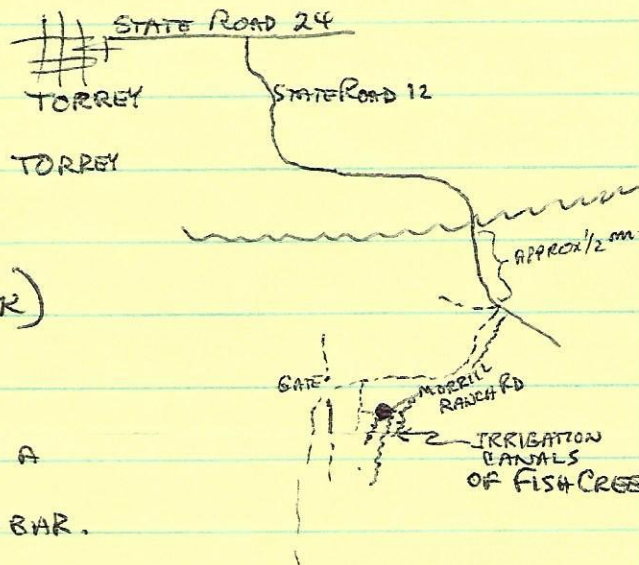 STATE ROAD 24
TORREY
STATE ROAD 12
TORREY
APPROX 1/2 m
K)
GATE
MORRILL
RANCH RD
A
IRRIGATION
CANALS
OF FISH CREE
BAR.